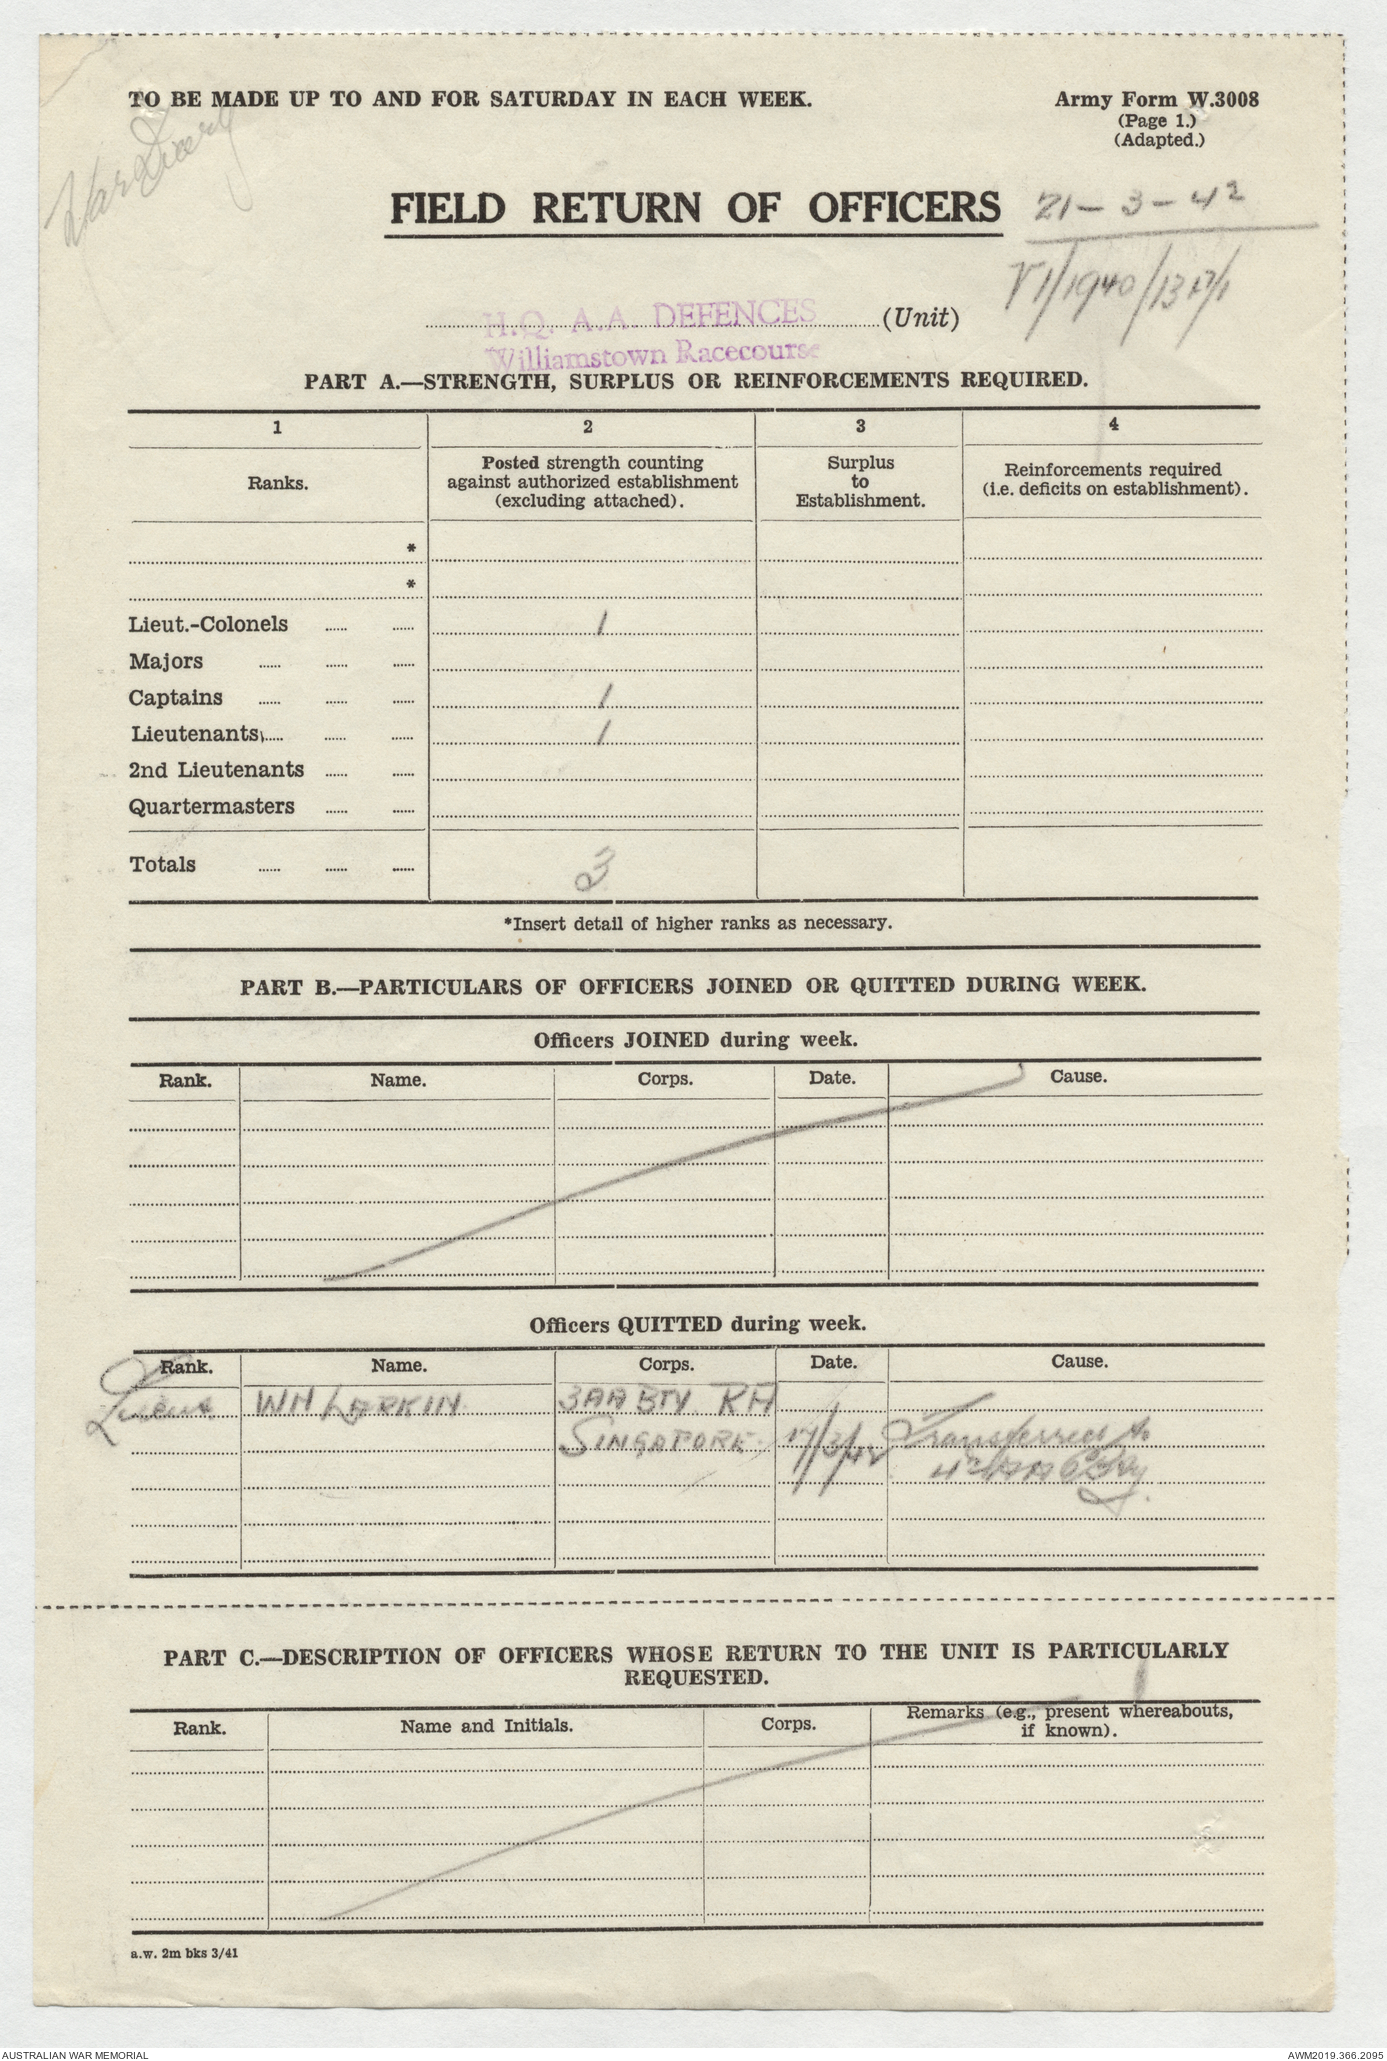 TO BE MADE UP TO AND FOR SATURDAY IN EACH WEEK.
Army Form W.3008
(Page 1.)
(Adapted.)
War Diary
FIELD RETURN OF OFFICERS
21-3-42
H.Q. A.A DEFENCES
Williamstown Racecourse
(Unit)
PART A.—STRENGTH, SURPLUS OR REINFORCEMENTS REQUIRED.
1 2 3 4
Ranks. Posted strength counting against authorized establishment (excluding attached). Surplus to Establishment. Reinforcements required (i.e. deficits on establishment).
*
*
Lieut.-Colonels 1
Majors
Captains 1
Lieutenants 1
2nd Lieutenants
Quartermasters
Totals 3
*Insert detail of higher ranks as necessary.
PART B.—PARTICULARS OF OFFICERS JOINED OR QUITTED DURING WEEK.
Officers JOINED during week.
Rank. Name. Corps. Date. Cause.
Officers QUITTED during week.
Rank. Name. Corps. Date. Cause.
Lieut WH LARKIN 3AA BTY RA
SINGAPORE 17/3/42 Transferred to
PART C.—DESCRIPTION OF OFFICERS WHOSE RETURN TO THE UNIT IS PARTICULARLY
REQUESTED.
Rank. Name and Initials. Corps. Remarks (e.g., present whereabouts, if known).
a.w. 2m bks 3/41
AUSTRALIAN WAR MEMORIAL
AWM2019.366.2095